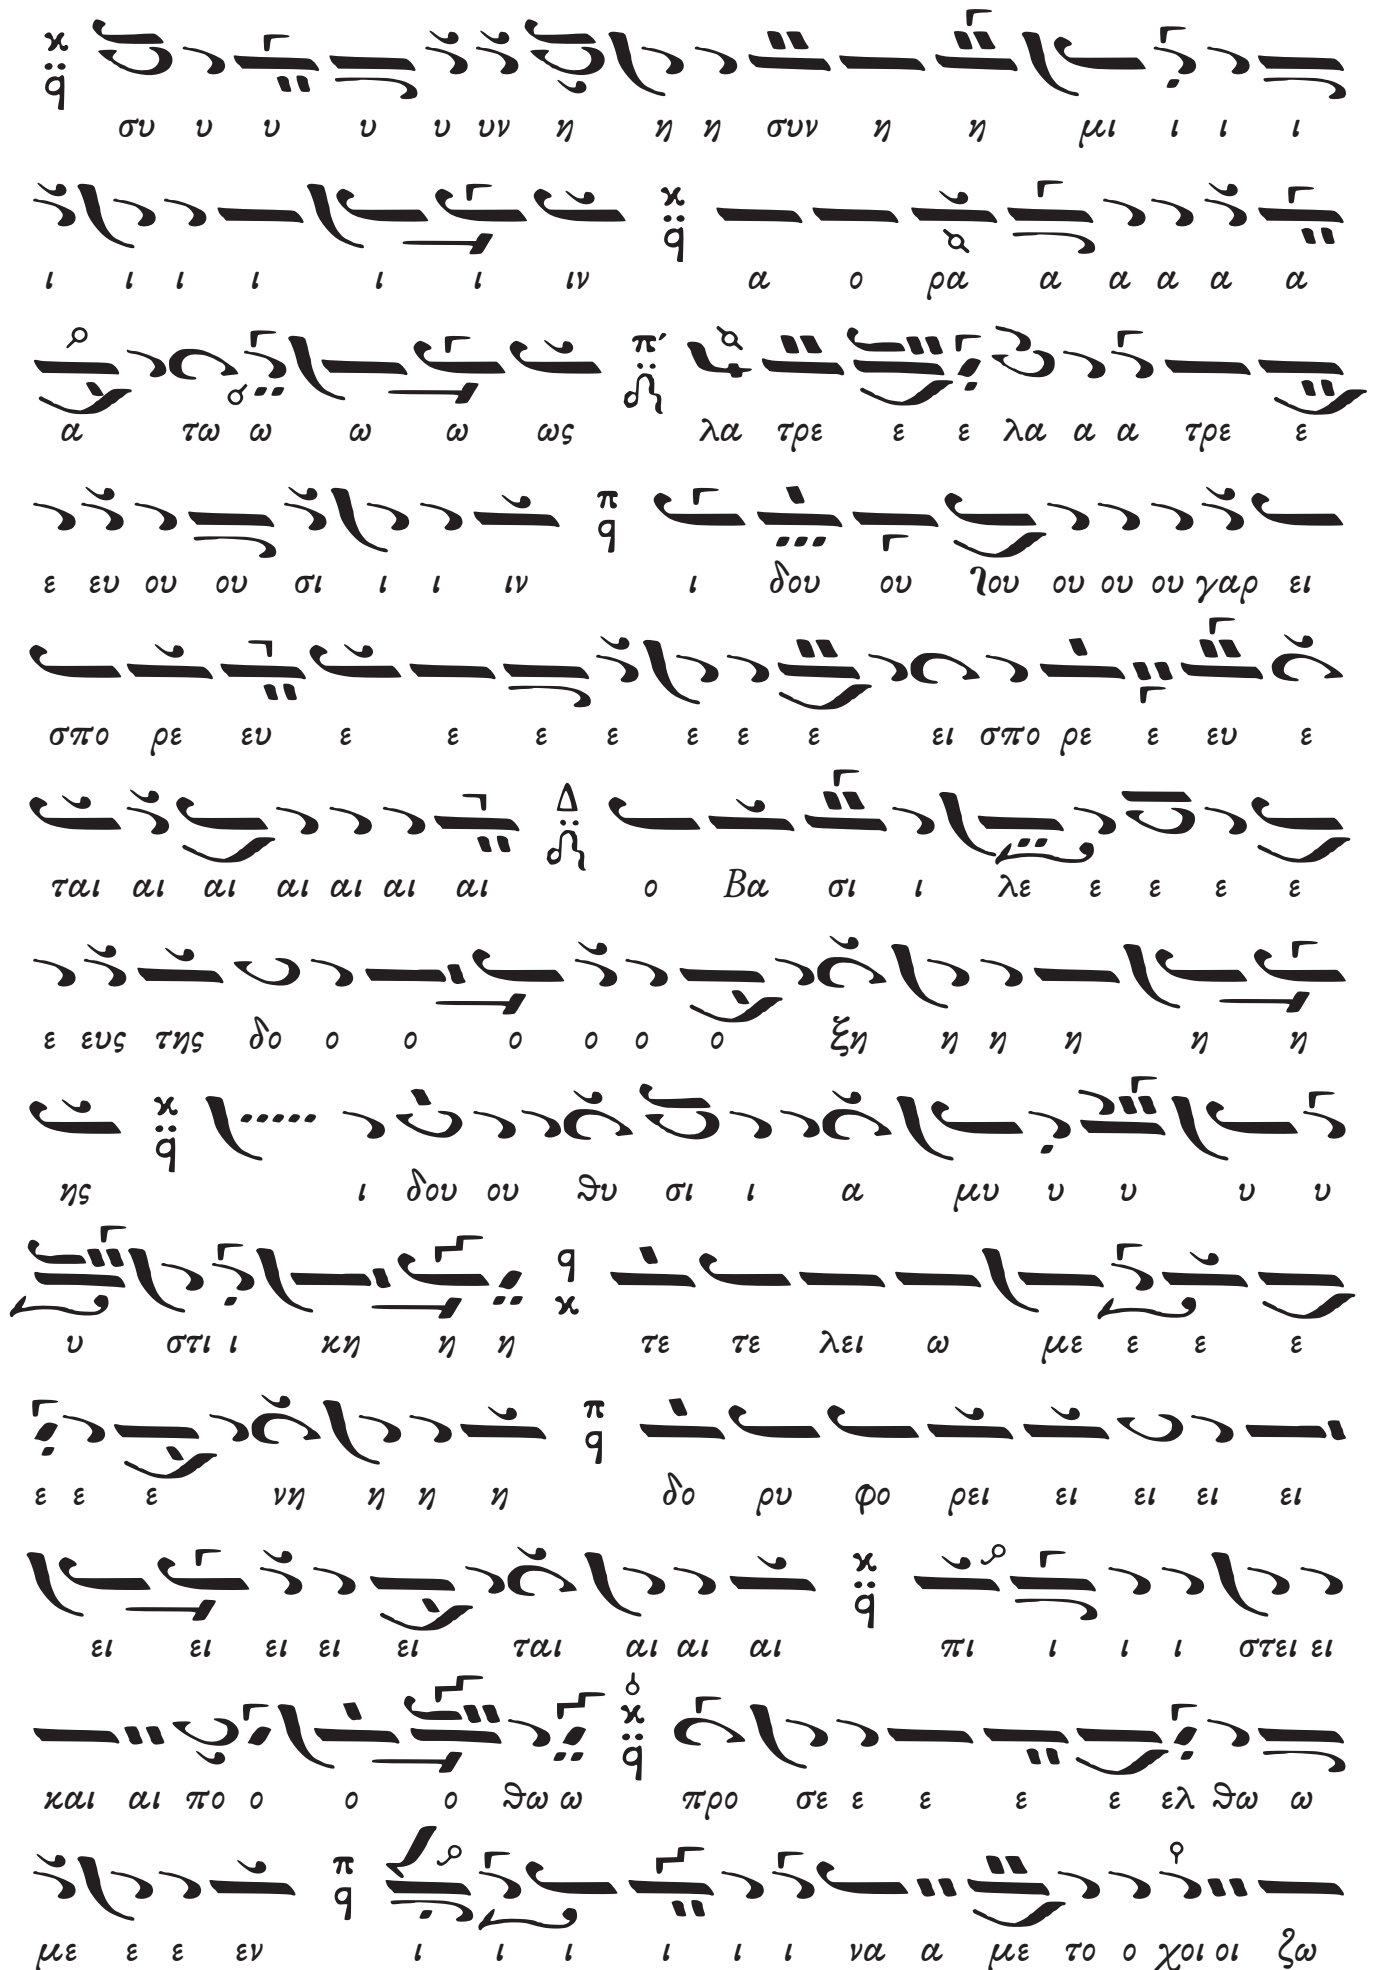 συ υ υ υ υ υν η η η συν η η μι ι ι ι
ι ι ι ι ι ι ιν α ο ρα α α α α α
α τω ω ω ω ως λα τρε ε ε λα α α τρε ε
ε ευ ου ου σι ι ι ιν ι δου ου Ιου ου ου ου γαρ ει
σπο ρε ευ ε ε ε ε ε ε ε ει σπο ρε ε ευ ε
ται αι αι αι αι αι αι ο Βα σι ι λε ε ε ε ε
ε ευς της δο ο ο ο ο ο ο ξη η η η η η
ης ι δου ου θυ σι ι α μυ υ υ υ υ
υ στι ι κη η η τε τε λει ω με ε ε ε
ε ε ε νη η η η δο ρυ φο ρει ει ει ει ει
ει ει ει ει ει ται αι αι αι πι ι ι ι στει ει
και αι πο ο ο ο θω ω προ σε ε ε ε ε ελ θω ω
με ε ε εν ι ι ι ι ι ι να α με το ο χοι οι ζω